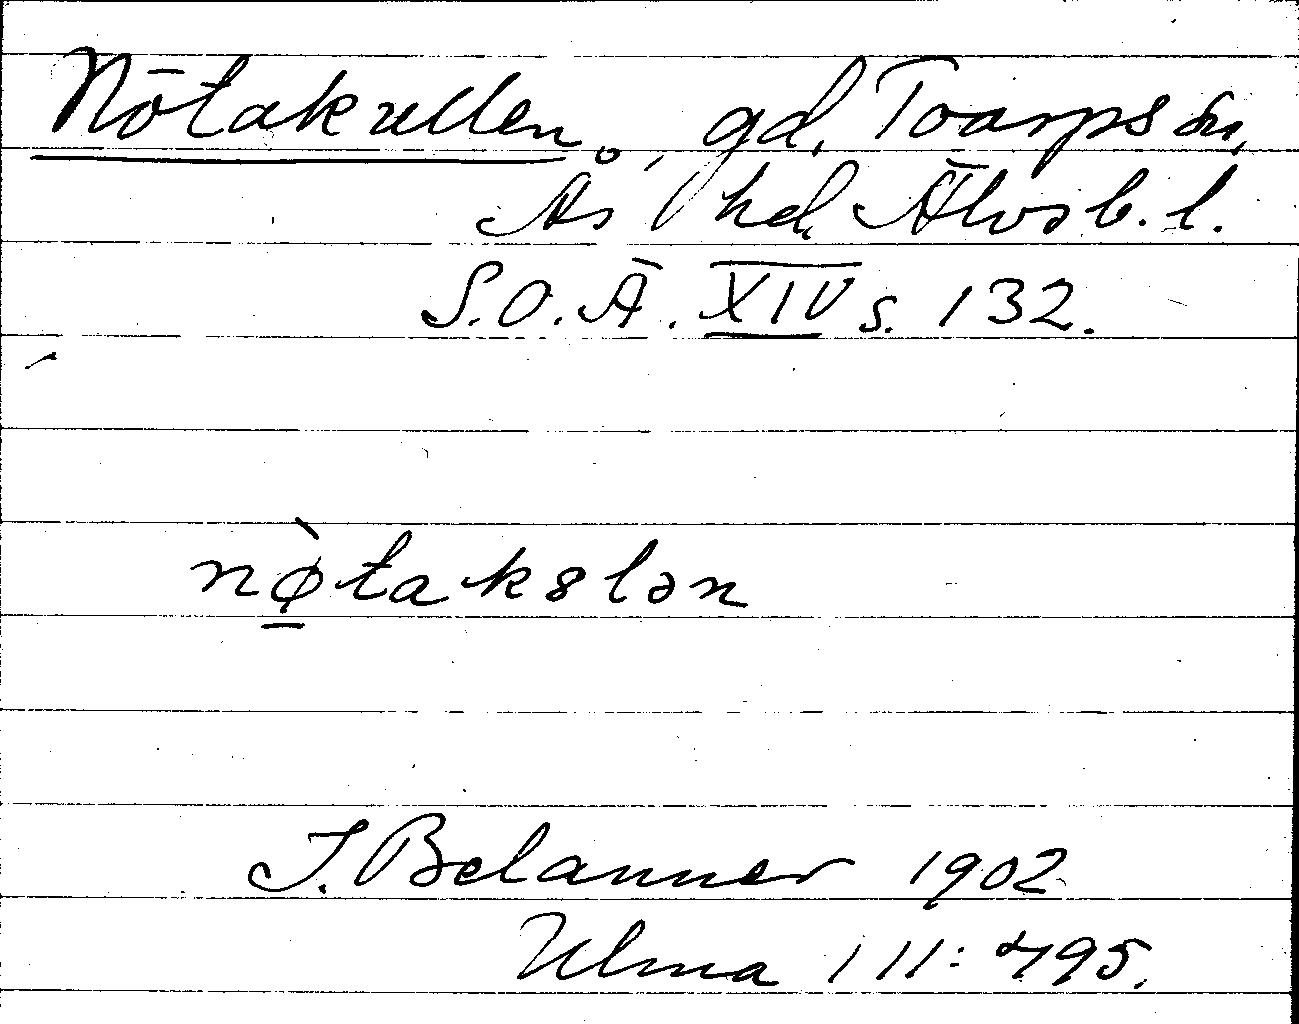 Nötakullen, gd, Toarps sn,
Ås hd, Älvsb. l.
S.O.Ä. XIV s. 132.
nø̀takslən
T. Belanner 1902
Ulma 111: 495.